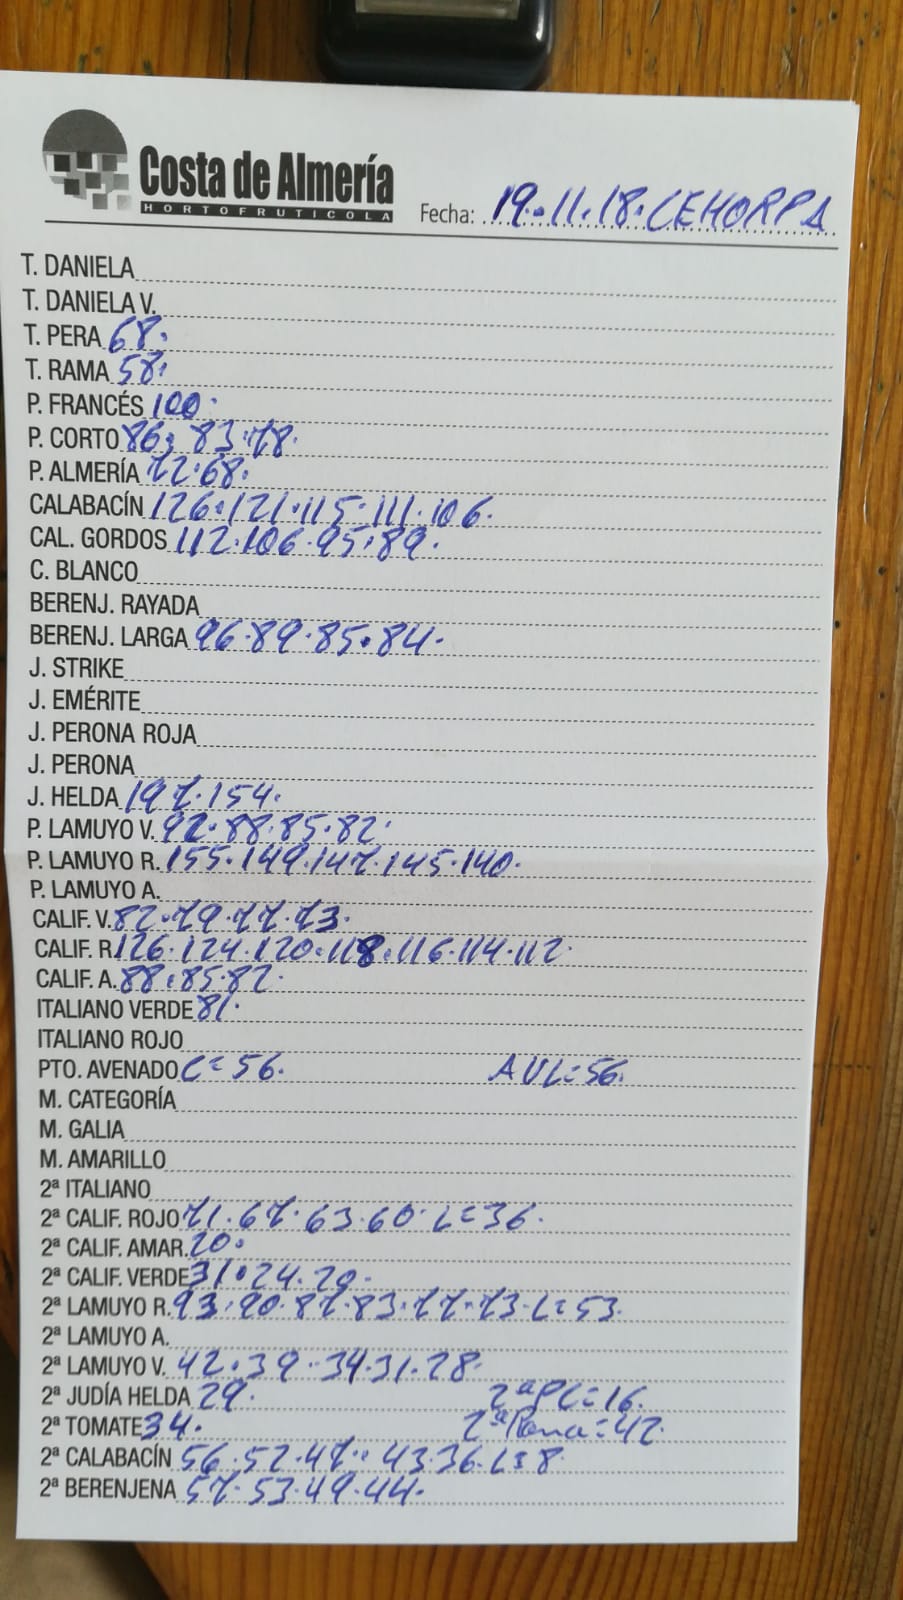 Costa de Almería
HORTOFRUTICOLA
Fecha: 19.11.18. CEHORPA
T. DANIELA
T. DANIELA V.
T. PERA 68.
T. RAMA 58.
P. FRANCÉS 100.
P. CORTO 86. 83. 78.
P. ALMERÍA 72. 68.
CALABACÍN 126. 121. 115. 111. 106.
CAL. GORDOS 112. 106. 95. 89.
C. BLANCO
BERENJ. RAYADA
BERENJ. LARGA 96. 89. 85. 84.
J. STRIKE
J. EMÉRITE
J. PERONA ROJA
J. PERONA
J. HELDA 197. 154.
P. LAMUYO V. 92. 88. 85. 82.
P. LAMUYO R. 155. 149. 147. 145. 140.
P. LAMUYO A.
CALIF. V. 82. 79. 77. 73.
CALIF. R. 126. 124. 120. 118. 116. 114. 112.
CALIF. A. 88. 85. 82.
ITALIANO VERDE 81.
ITALIANO ROJO
PTO. AVENADO C= 56. AVL= 56.
M. CATEGORÍA
M. GALIA
M. AMARILLO
2ª ITALIANO
2ª CALIF. ROJO 71. 67. 63. 60. L= 36.
2ª CALIF. AMAR. 20.
2ª CALIF. VERDE 31. 24. 20.
2ª LAMUYO R. 93. 90. 87. 83. 77. 73. L= 53.
2ª LAMUYO A.
2ª LAMUYO V. 42. 39. 34. 31. 28.
2ª JUDÍA HELDA 29. 2ª PC= 16.
2ª TOMATE 34. 2ª Pera= 42.
2ª CALABACÍN 56. 52. 47. 43. 36. L= 8.
2ª BERENJENA 57. 53. 49. 44.